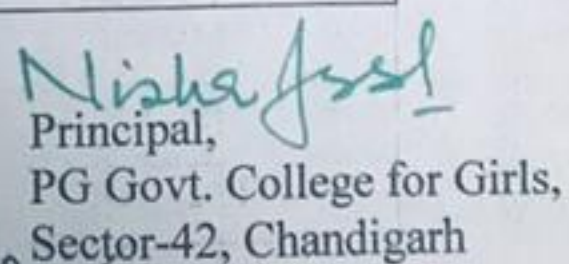 Nisha
Principal,
PG Govt. College for Girls,
Sector-42, Chandigarh